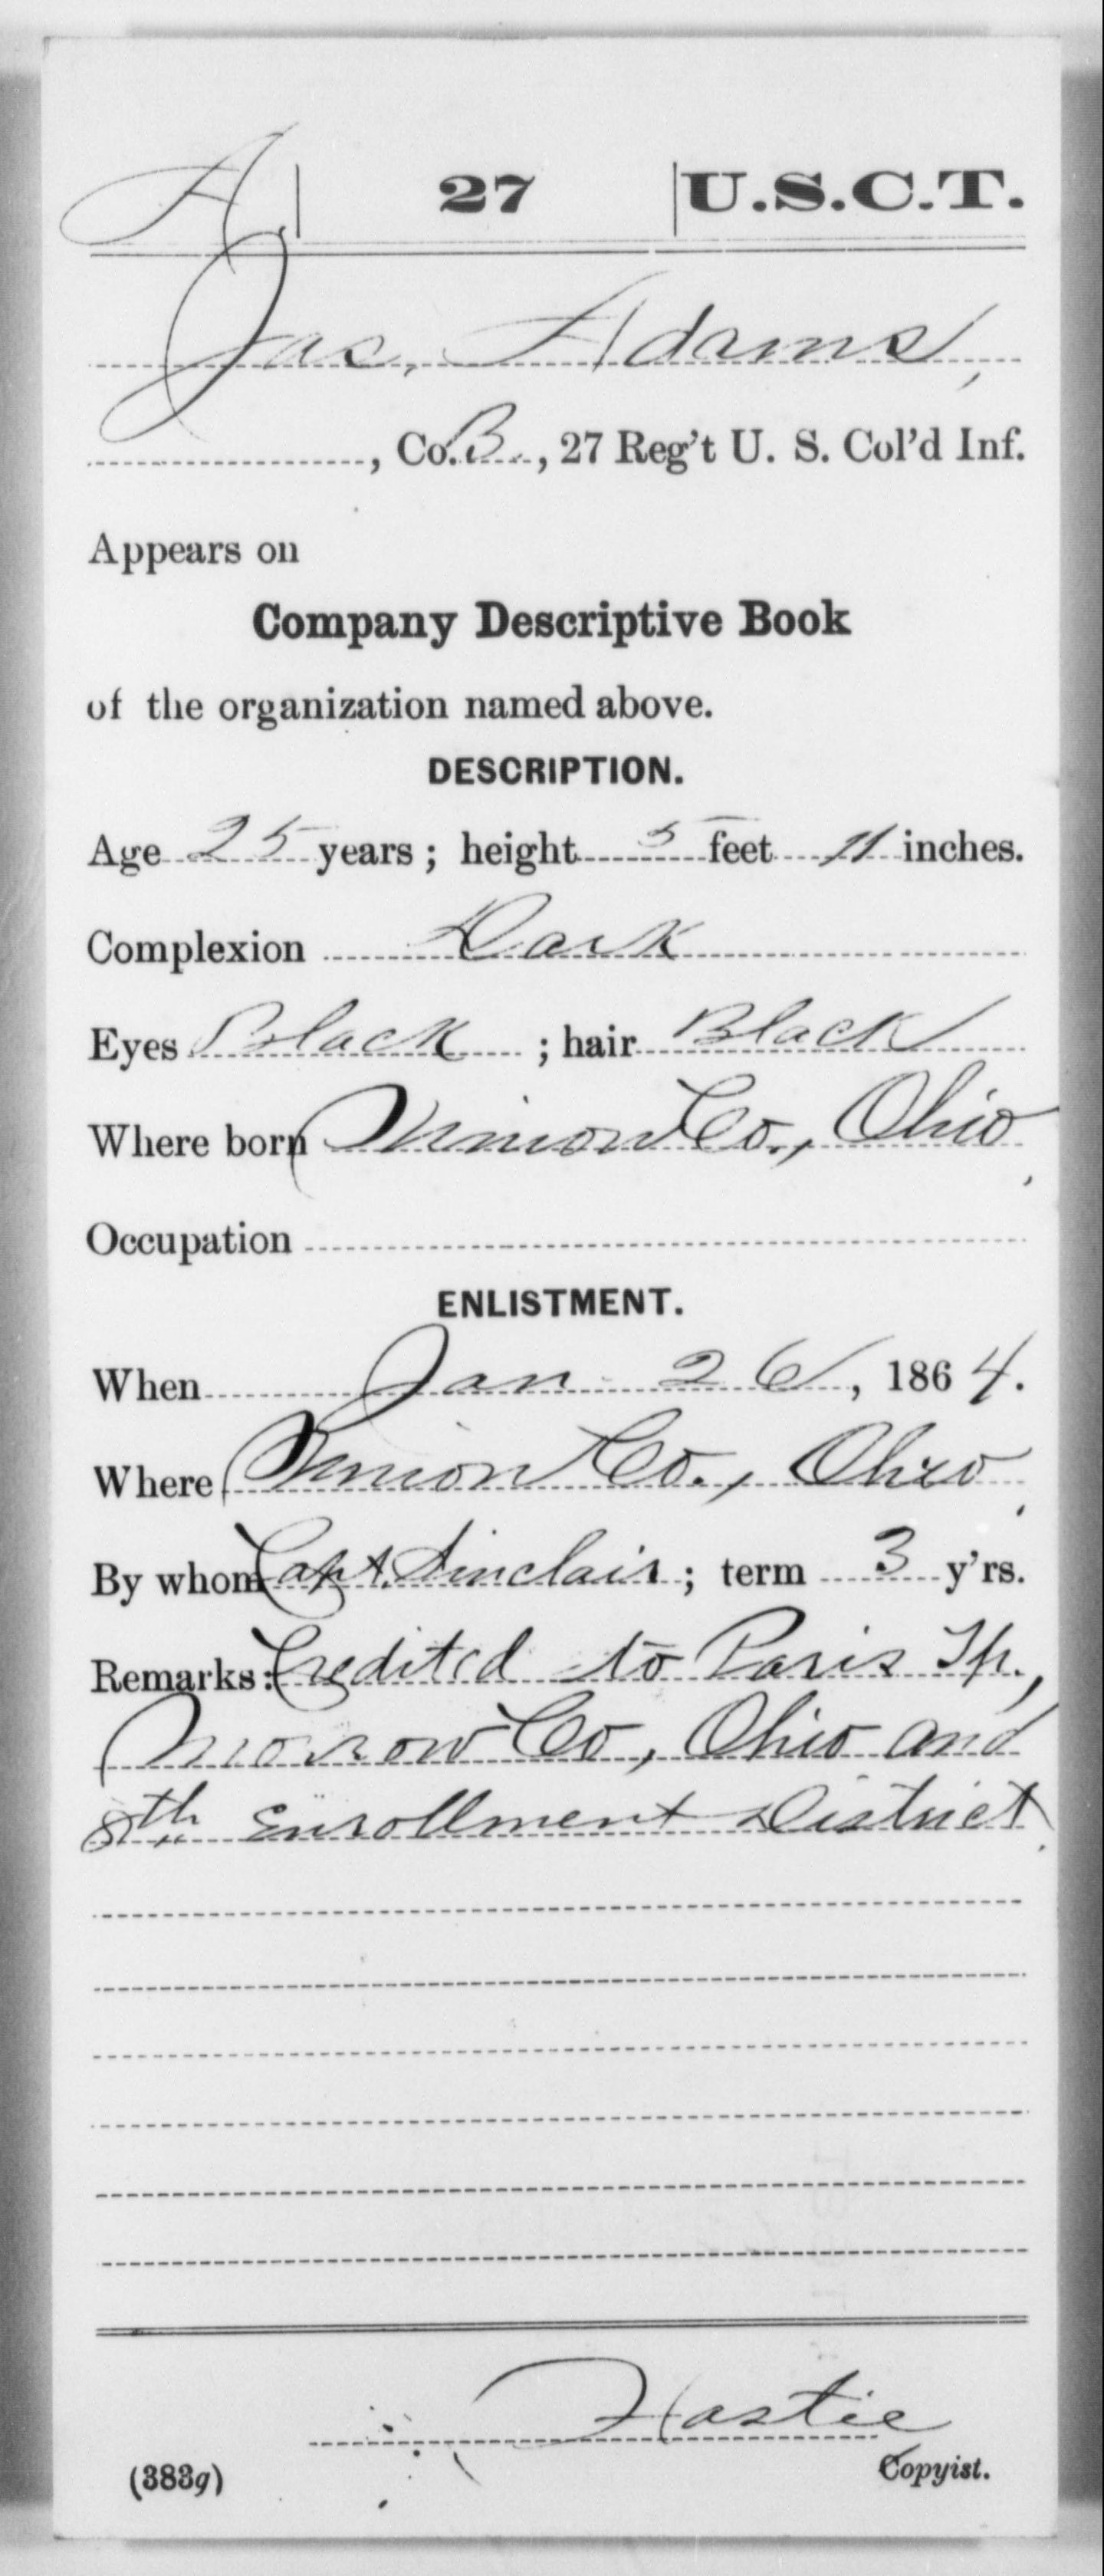 A. | 27 | U.S.C.T.
Jas. Adams,
, Co. B., 27 Reg't U. S. Col'd Inf.
Appears on
Company Descriptive Book
of the organization named above.
DESCRIPTION.
Age 25 years; height 5 feet 11 inches.
Complexion Dark
Eyes Black ; hair Black
Where born Union Co., Ohio.
Occupation
ENLISTMENT.
When Jan 26, 1864.
Where Union Co., Ohio.
By whom Capt. Sinclair; term 3 y'rs.
Remarks: Credited to Paris Tp.,
Morrow Co., Ohio and
8th Enrollment District.
Hastie
(383g) Copyist.